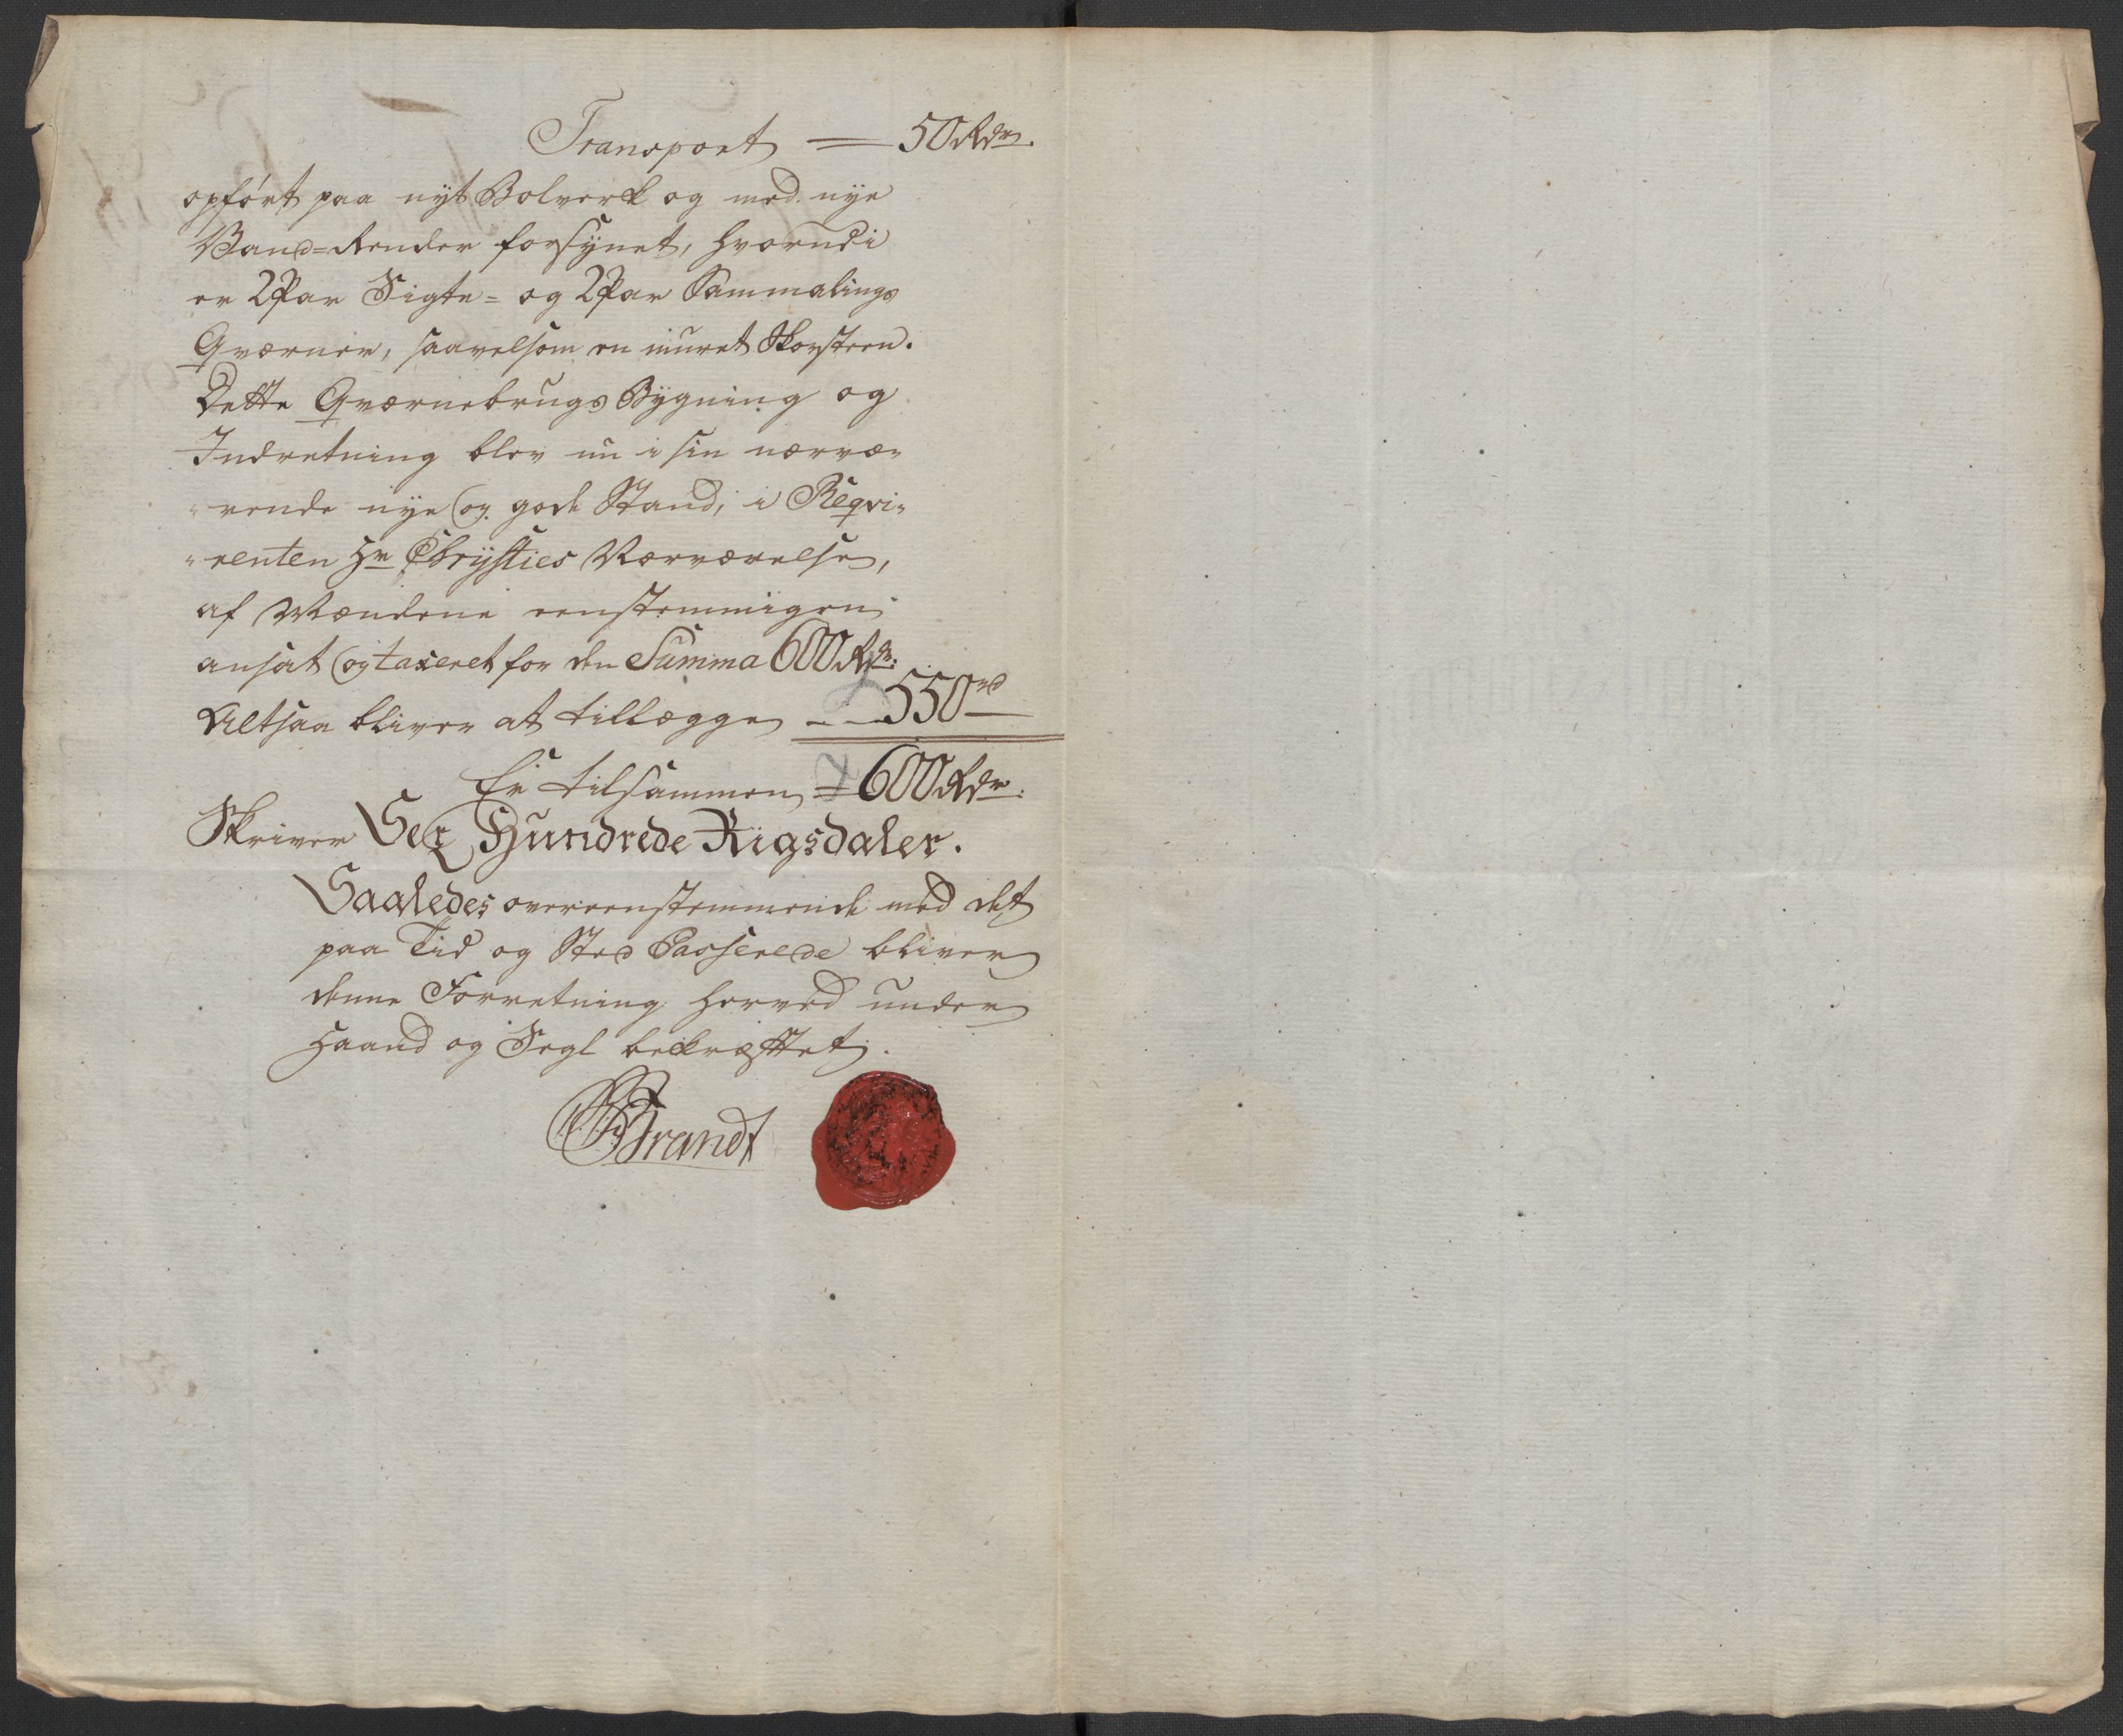 Transport = 50 Rdr.
opført paa nyt Bolverk og med nye
Vand=Render forsynet, hvorudi
er 2 Par Sigte= og 2 Par Sammalings
Qværner, saavelsom en muret Skorsteen.
Dette Qværnebrugs Bygning og
Indretning blev nu i sin nærvæ-
-rende nye og gode Stand, i Reqvi-
-renten Hr Chrÿsties Nærværelse,
af Mændene eenstemmigen
ansat og taxeret for den Summa 600 Rdr.
Altsaa bliver at tillægge - - 550 rd
Er tilsammen = 600 Rdr.
Skriver Sex Hundrede Rigsdaler.
Saaledes overeenstemmende med det
paa Tid og Sted Passerede bliver
denne Forretning herved under
Haand og Segl bekræftet.
Brandt